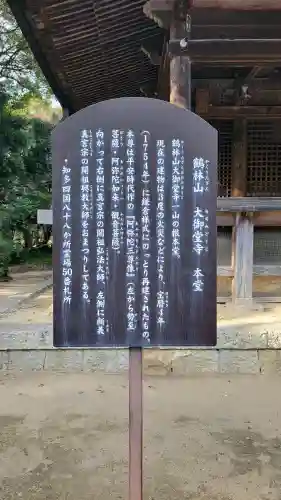 鶴林山　大御堂寺　本堂
鶴林山大御堂寺一山の根本堂。
現在の建物は5度の火災などにより、宝暦4年
(1754年)に鎌倉様式にのっとり再建されたもの。
本尊は平安時代作の『阿弥陀三尊像』(左から勢至
菩薩・阿弥陀如来・観音菩薩)。
向かって右側に真言宗の開祖弘法大師、左側に新義
真言宗の開祖興教大師をおまつりしてある。
・知多四国八十八か所霊場50番札所